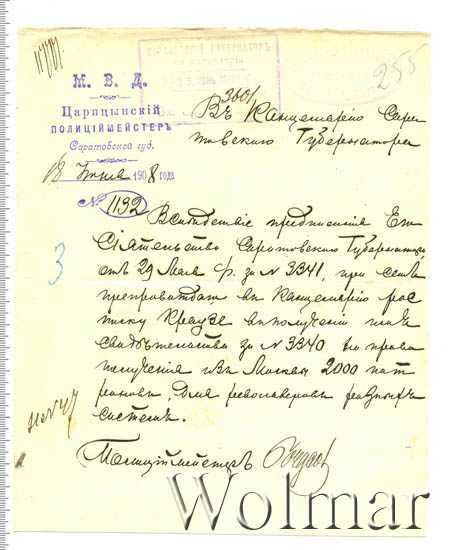 САРАТОВСКІЙ ГУБЕРНАТОРЪ
255
М. В. Д.
Царицынскій
ПОЛИЦІЙМЕЙСТЕРЪ
Саратовской губ.
18 Іюня 1908 года
№ 1132
Въ Канцелярію Сара
товскаго Губернатора
3
Вслѣдствіе предписанія Его
Сіятельства Саратовскаго Губернатора,
отъ 29 Мая с/г. за № 3341, при семъ
препровождаю въ Канцелярію рос
писку Краузе въ полученіи имъ
свидѣтельства за № 3340 на право
полученія изъ Москвы 2000 пат
роновъ, для револьверовъ разныхъ
системъ.
Полиціймейстеръ
Wolmar